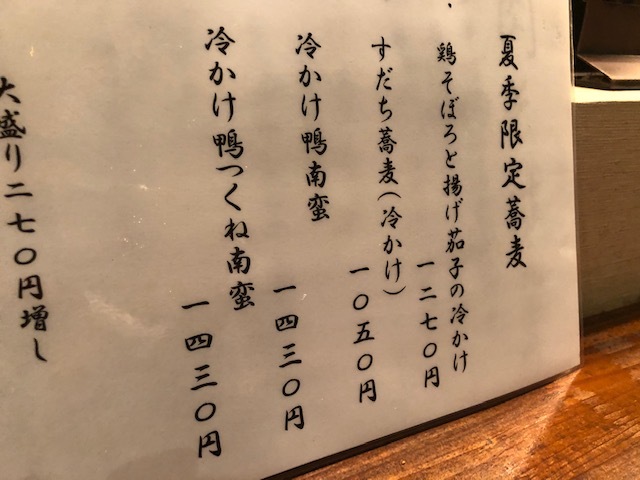 夏季限定蕎麦
鶏そぼろと揚げ茄子の冷かけ
一二七〇円
すだち蕎麦(冷かけ)
一〇五〇円
冷かけ鴨南蛮
一四三〇円
冷かけ鴨つくね南蛮
一四三〇円
大盛り二七〇円増し